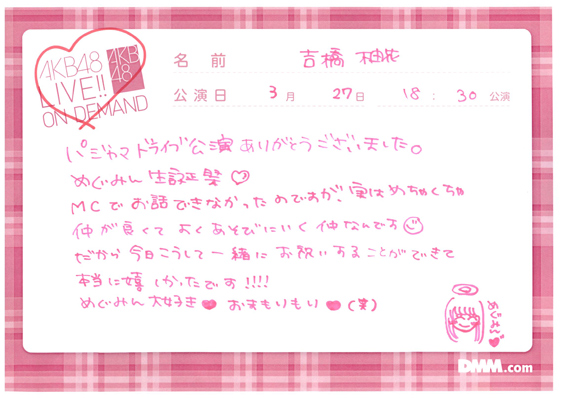 AKB48
LIVE!!
ON DEMAND
AKB
48
名前 吉橋 柚花
公演日 3月 27日 18:30 公演
パジャマドライブ公演ありがとうございました。
めぐみん生誕祭♡
MCでお話できなかったのですが、実はめちゃくちゃ
仲が良くてよくあそびにいく仲なんです☺
だから今日こうして一緒にお祝いすることができて
本当に嬉しかったです!!!!
めぐみん大好き♥ おまもりもり♥(笑)
めぐみん♥
DMM.com